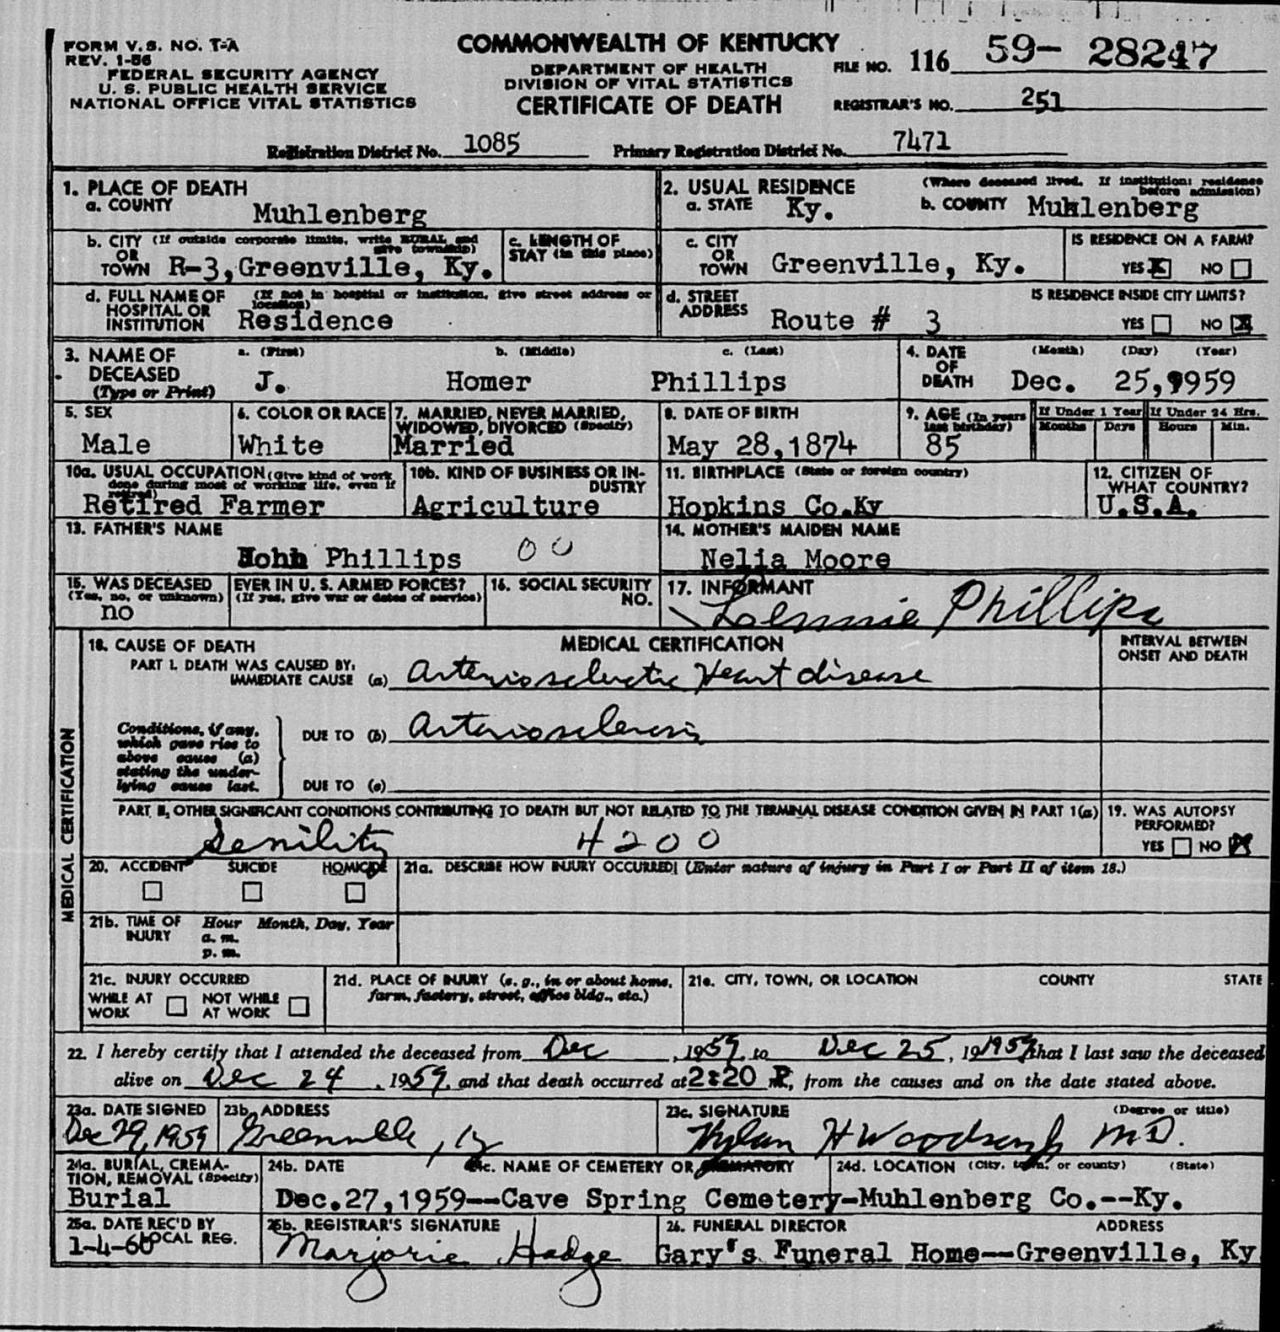 FORM V. S. NO. 1-A
REV. 1-56
FEDERAL SECURITY AGENCY
U. S. PUBLIC HEALTH SERVICE
NATIONAL OFFICE VITAL STATISTICS
COMMONWEALTH OF KENTUCKY
DEPARTMENT OF HEALTH
DIVISION OF VITAL STATISTICS
CERTIFICATE OF DEATH
FILE NO. 116 59- 28247
REGISTRAR'S NO. 251
Registration District No. 1085 Primary Registration District No. 7471
1. PLACE OF DEATH
a. COUNTY Muhlenberg
2. USUAL RESIDENCE (Where deceased lived. If institution: residence before admission)
a. STATE Ky. b. COUNTY Muhlenberg
b. CITY (If outside corporate limits, write RURAL and give township)
OR
TOWN R-3,Greenville, Ky.
c. LENGTH OF
STAY (in this place)
c. CITY
OR
TOWN Greenville, Ky.
IS RESIDENCE ON A FARM?
YES X NO
d. FULL NAME OF (If not in hospital or institution, give street address or location)
HOSPITAL OR
INSTITUTION Residence
d. STREET
ADDRESS Route # 3
IS RESIDENCE INSIDE CITY LIMITS?
YES NO X
3. NAME OF
DECEASED
(Type or Print)
a. (First) b. (Middle) c. (Last)
J. Homer Phillips
4. DATE
OF
DEATH
(Month) (Day) (Year)
Dec. 25,1959
5. SEX
Male
6. COLOR OR RACE
White
7. MARRIED, NEVER MARRIED,
WIDOWED, DIVORCED (Specify)
Married
8. DATE OF BIRTH
May 28,1874
9. AGE (In years
last birthday)
85
If Under 1 Year If Under 24 Hrs.
Months Days Hours Min.
10a. USUAL OCCUPATION (Give kind of work
done during most of working life, even if
retired)
Retired Farmer
10b. KIND OF BUSINESS OR IN-
DUSTRY
Agriculture
11. BIRTHPLACE (State or foreign country)
Hopkins Co.Ky
12. CITIZEN OF
WHAT COUNTRY?
U.S.A.
13. FATHER'S NAME
John Phillips 00
14. MOTHER'S MAIDEN NAME
Nelia Moore
15. WAS DECEASED EVER IN U. S. ARMED FORCES?
(Yes, no, or unknown) (If yes, give war or dates of service)
no
16. SOCIAL SECURITY
NO.
17. INFORMANT
Phillips
MEDICAL CERTIFICATION
18. CAUSE OF DEATH
MEDICAL CERTIFICATION
INTERVAL BETWEEN
ONSET AND DEATH
PART I. DEATH WAS CAUSED BY:
IMMEDIATE CAUSE (a) Arteriosclerotic Heart disease
Conditions, if any,
which gave rise to
above cause (a)
stating the under-
lying cause last.
DUE TO (b) Arteriosclerosis
DUE TO (c)
PART II. OTHER SIGNIFICANT CONDITIONS CONTRIBUTING TO DEATH BUT NOT RELATED TO THE TERMINAL DISEASE CONDITION GIVEN IN PART 1(a)
Senility 4200
19. WAS AUTOPSY
PERFORMED?
YES NO X
20. ACCIDENT SUICIDE HOMICIDE
21a. DESCRIBE HOW INJURY OCCURRED: (Enter nature of injury in Part I or Part II of item 18.)
21b. TIME OF
INJURY
Hour Month, Day, Year
a. m.
p. m.
21c. INJURY OCCURRED
WHILE AT
WORK
NOT WHILE
AT WORK
21d. PLACE OF INJURY (e. g., in or about home,
farm, factory, street, office bldg., etc.)
21e. CITY, TOWN, OR LOCATION COUNTY STATE
22. I hereby certify that I attended the deceased from Dec , 1959, to Dec 25, 191959, that I last saw the deceased
alive on Dec 24, 1959, and that death occurred at 2:20 P., from the causes and on the date stated above.
23a. DATE SIGNED
Dec 29, 1959
23b. ADDRESS
Greenville, Ky
23c. SIGNATURE (Degree or title)
H Woodson MD.
24a. BURIAL, CREMA-
TION, REMOVAL (Specify)
Burial
24b. DATE 24c. NAME OF CEMETERY OR CREMATORY 24d. LOCATION (City, town, or county) (State)
Dec.27,1959--Cave Spring Cemetery-Muhlenberg Co.--Ky.
25a. DATE REC'D BY
LOCAL REG.
1-4-60
25b. REGISTRAR'S SIGNATURE
Marjorie Hodge
26. FUNERAL DIRECTOR ADDRESS
Gary's Funeral Home--Greenville, Ky